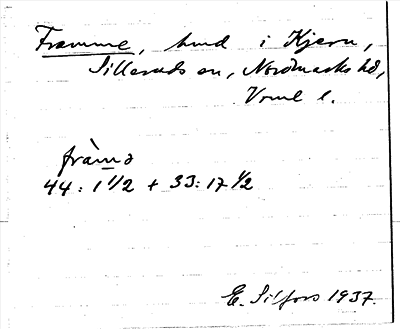 Framme, hmd i Kjern,
Silleruds sn, Nordmarks hd,
Vrml l.
fràmə
44: 1 1/2 + 33: 17 1/2
E. Silfors 1937.